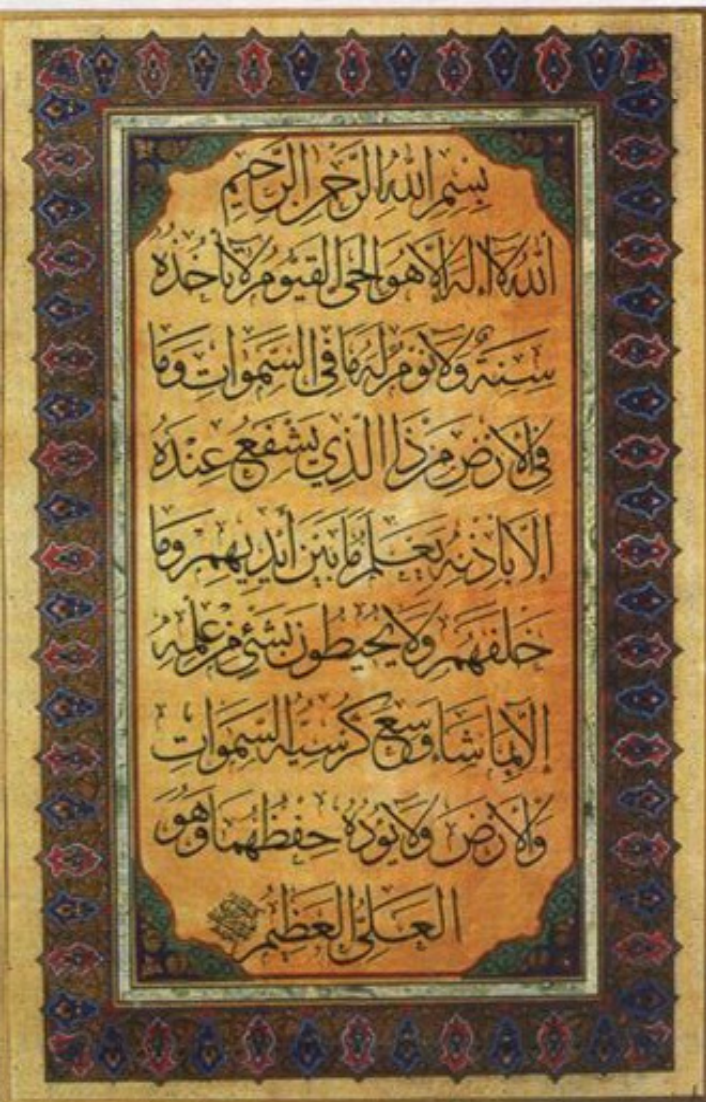 بِسْمِ اللهِ الرَّحْمٰنِ الرَّحِيمِ
اَللهُ لَآ اِلٰهَ اِلَّا هُوَ الْحَيُّ الْقَيُّومُ لَا تَأْخُذُهُ
سِنَةٌ وَلَا نَوْمٌ لَهُ مَا فِي السَّمٰوَاتِ وَمَا
فِي الْاَرْضِ مَنْ ذَا الَّذِي يَشْفَعُ عِنْدَهُ
اِلَّا بِاِذْنِهِ يَعْلَمُ مَا بَيْنَ أَيْدِيهِمْ وَمَا
خَلْفَهُمْ وَلَا يُحِيطُونَ بِشَيْءٍ مِنْ عِلْمِهِ
اِلَّا بِمَا شَاءَ وَسِعَ كُرْسِيُّهُ السَّمٰوَاتِ
وَالْاَرْضَ وَلَا يَؤُدُهُ حِفْظُهُمَا وَهُوَ
الْعَلِيُّ الْعَظِيمُ